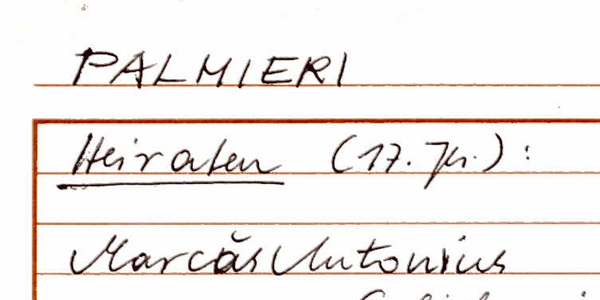 PALMIERI
Heiraten (17. Jh.):
Marcus Antonius